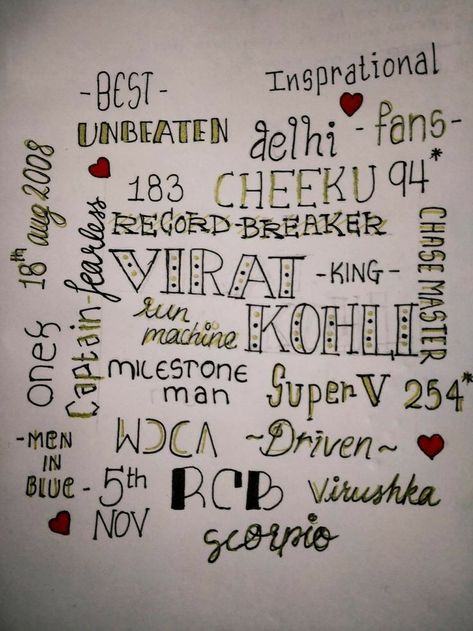 -BEST-
Insprational
UNBEATEN
delhi
-fans-
18th aug 2008
183
CHEEKU
94*
fearless
RECORD-BREAKER
VIRAT
-KING-
CHASE MASTER
Captain
run
machine
KOHLI
one8
MILESTONE
man
Super V
254*
-MEN
IN
BLUE-
WDCA
~Driven~
5th
NOV
RCB
Virushka
scorpio